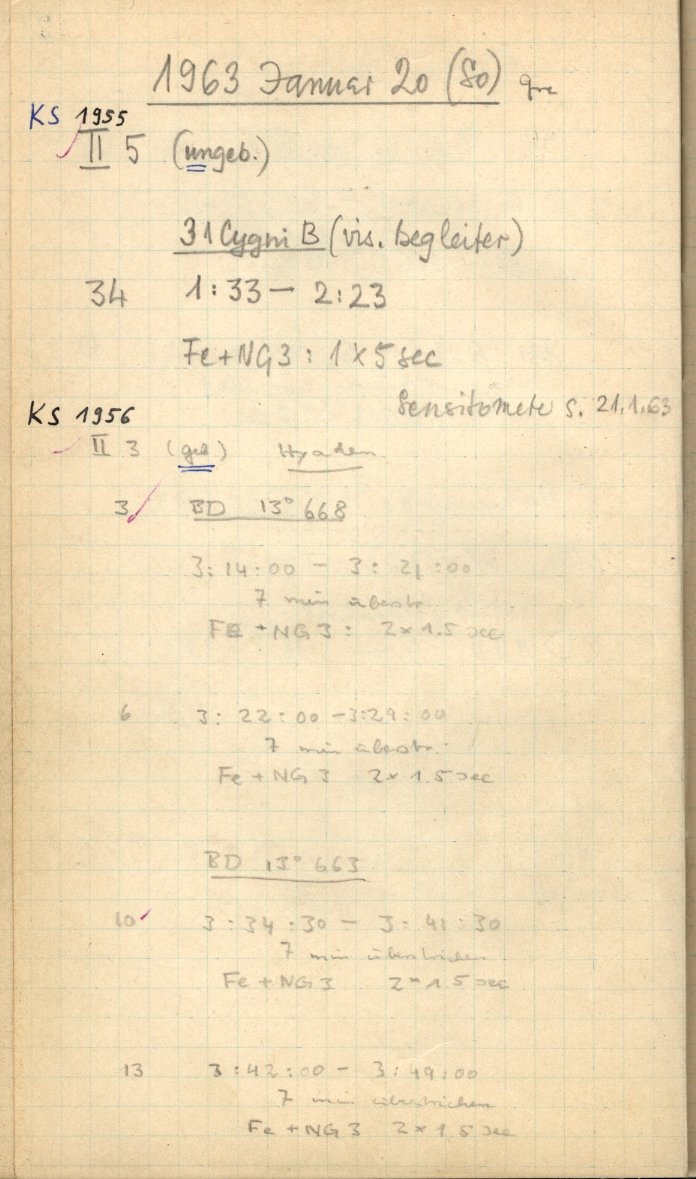 1963 Januar 20 (So)
KS 1955
II 5 (ungeb.)
31 Cygni B (vis. Begleiter)
34 1:33 — 2:23
Fe+NG3 : 1 x 5 sec
Sensitometer s. 21.1.63
KS 1956
II 3 (geb) Hyaden
3 BD 13° 668
3:14:00 — 3:21:00
7 min überstr.
FE + NG 3 : 2 x 1.5 sec
6 3:22:00 — 3:29:00
7 min überstr.
Fe + NG 3 2 x 1.5 sec
BD 13° 663
10 3:34:30 — 3:41:30
7 min überstrichen
Fe + NG 3 2 x 1.5 sec
13 3:42:00 — 3:49:00
7 min überstrichen
Fe + NG 3 2 x 1.5 sec